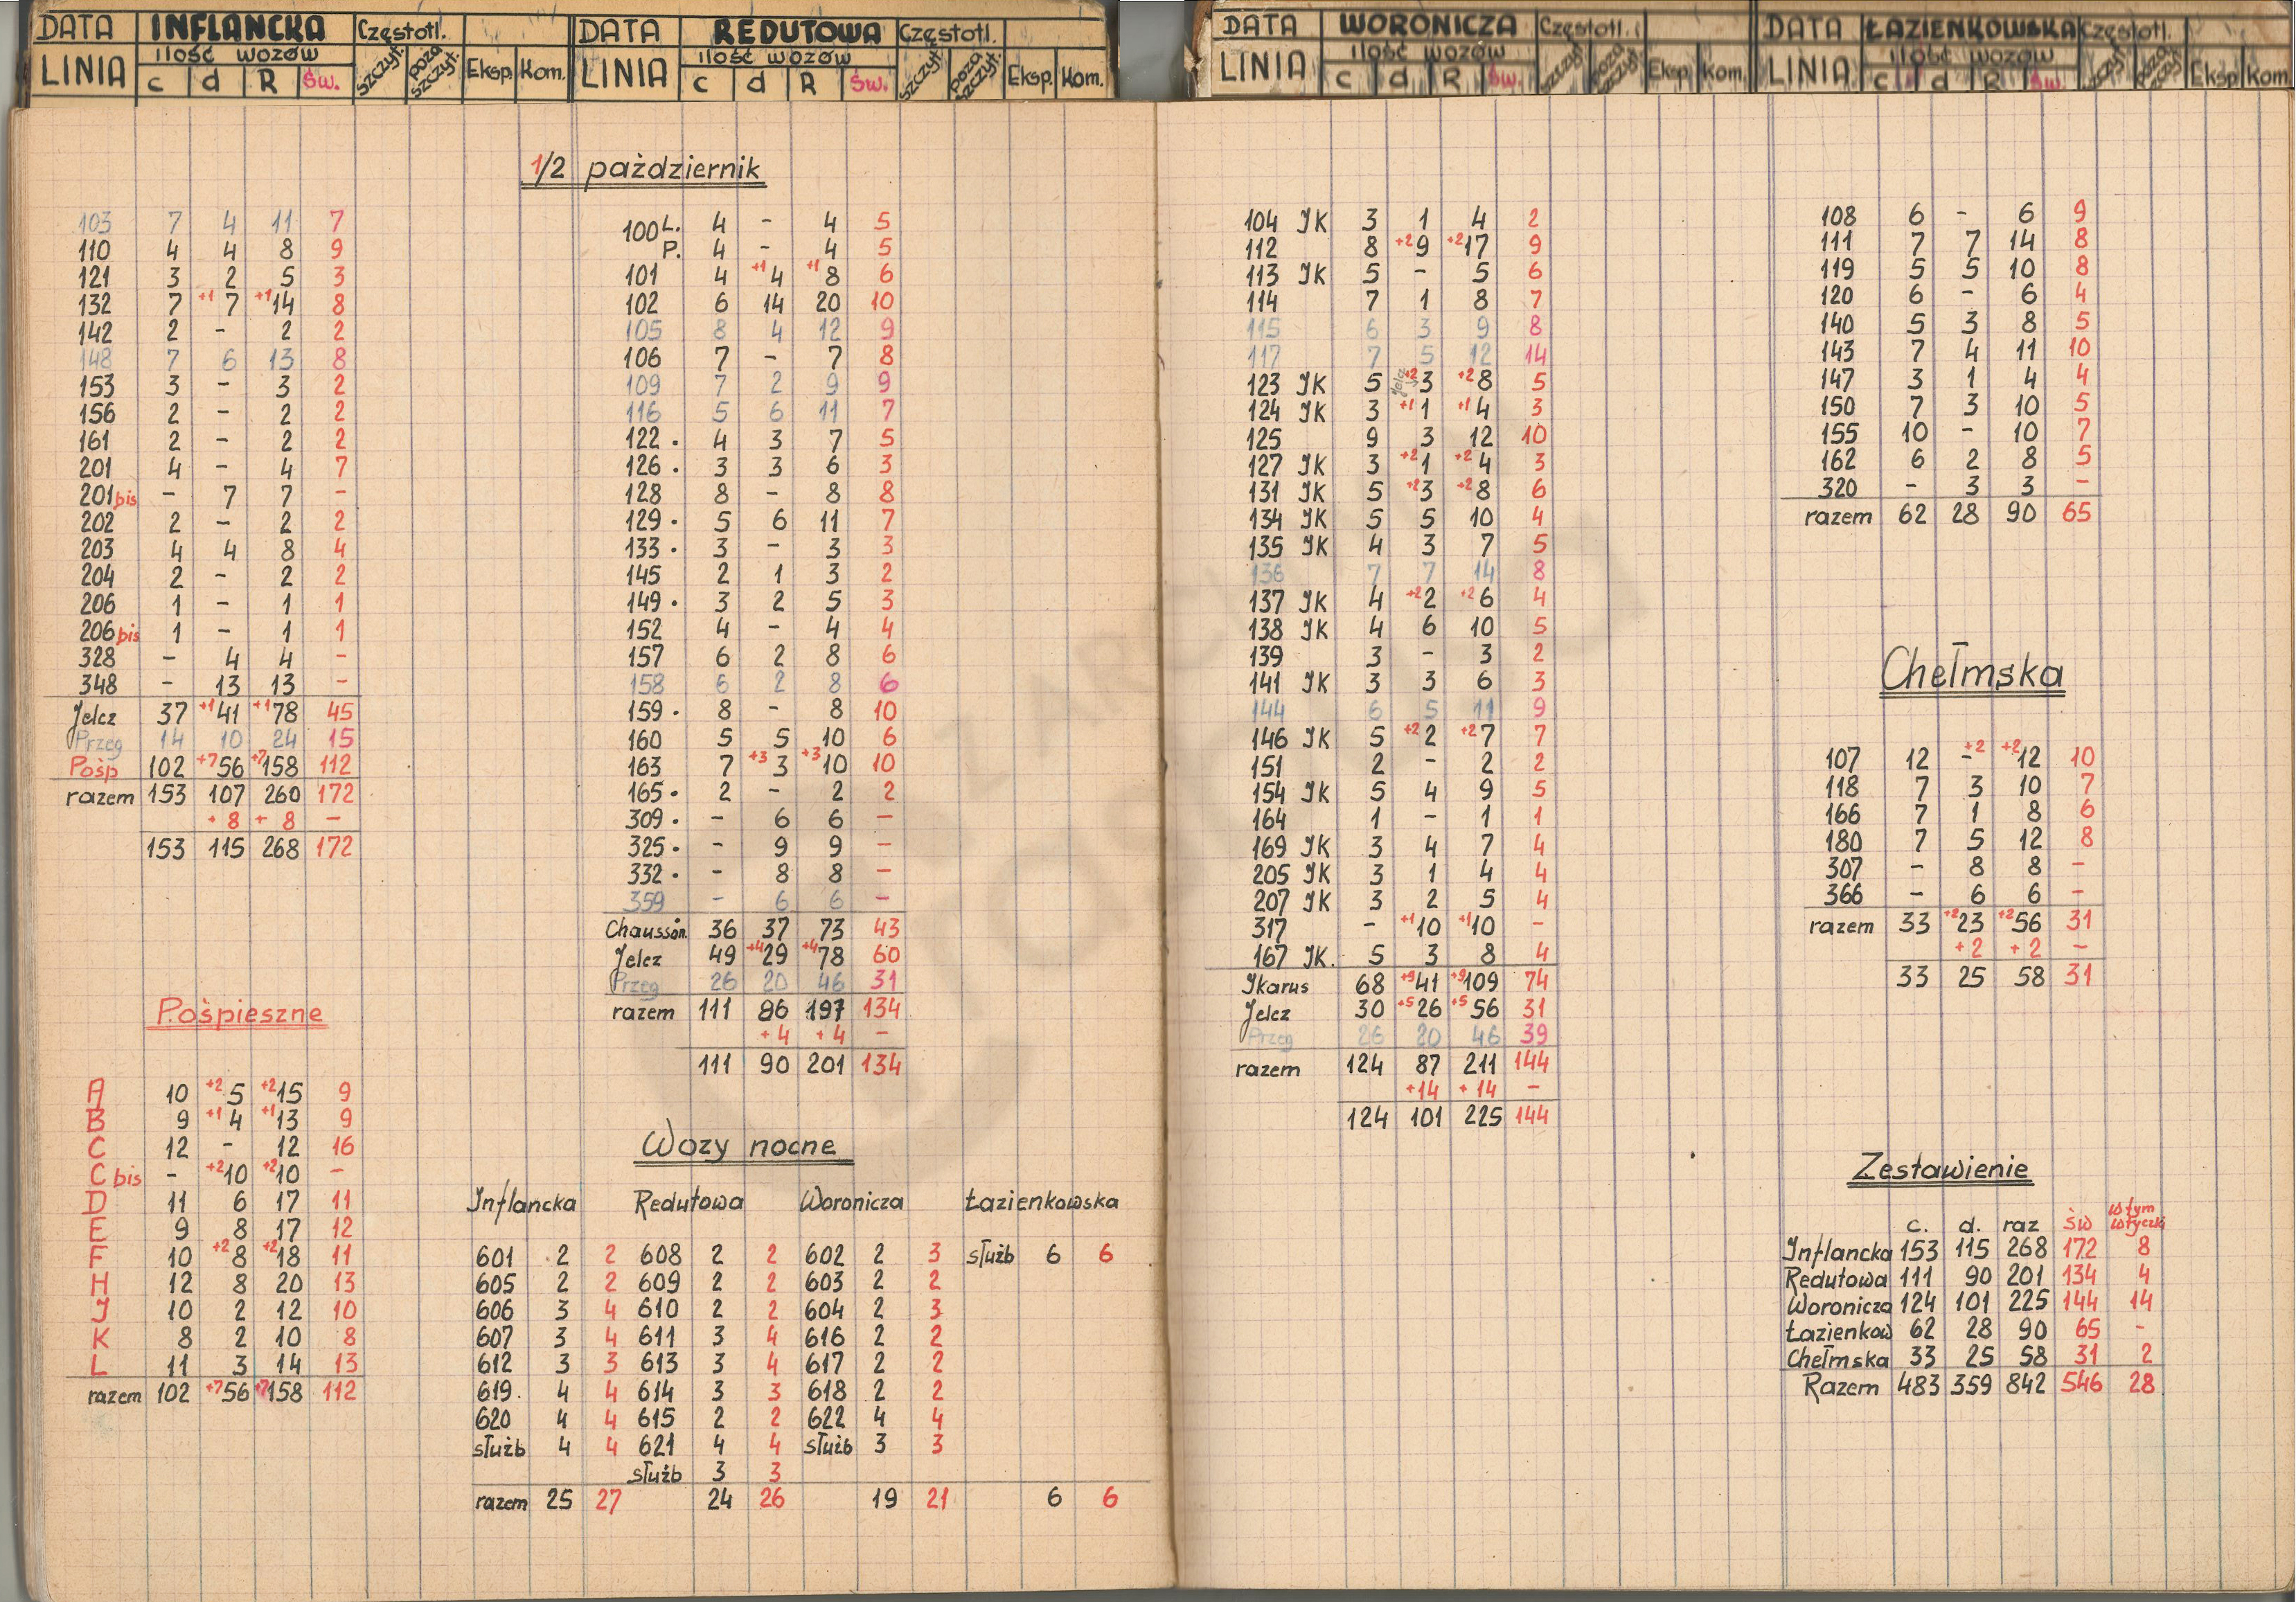 DATA INFLANCKA Częstotl.
LINIA ilość wozów szczyt. poza szczyt. Eksp. Kom.
c d R Św.
DATA REDUTOWA Częstotl.
LINIA ilość wozów szczyt. poza szczyt. Eksp. Kom.
c d R Św.
DATA WORONICZA Częstotl.
LINIA ilość wozów szczyt. poza szczyt. Eksp. Kom.
c d R Św.
DATA ŁAZIENKOWSKA Częstotl.
LINIA ilość wozów szczyt. poza szczyt. Eksp. Kom.
c d R Św.
1/2 październik
103 7 4 11 7
110 4 4 8 9
121 3 2 5 3
132 7 +1 7 +1 14 8
142 2 - 2 2
148 7 6 13 8
153 3 - 3 2
156 2 - 2 2
161 2 - 2 2
201 4 - 4 7
201 bis - 7 7 -
202 2 - 2 2
203 4 4 8 4
204 2 - 2 2
206 1 - 1 1
206 bis 1 - 1 1
328 - 4 4 -
348 - 13 13 -
Jelcz 37 +1 41 +1 78 45
Przeg 14 10 24 15
Pośp 102 +7 56 +7 158 112
razem 153 107 260 172
+ 8 + 8 -
153 115 268 172
Pośpieszne
A 10 +2 5 +2 15 9
B 9 +1 4 +1 13 9
C 12 - 12 16
C bis - +2 10 +2 10 -
D 11 6 17 11
E 9 8 17 12
F 10 +2 8 +2 18 11
H 12 8 20 13
J 10 2 12 10
K 8 2 10 8
L 11 3 14 13
razem 102 +7 56 +7 158 112
100 L. 4 - 4 5
P. 4 - 4 5
101 4 +1 4 +1 8 6
102 6 14 20 10
105 8 4 12 9
106 7 - 7 8
109 7 2 9 9
116 5 6 11 7
122 . 4 3 7 5
126 . 3 3 6 3
128 8 - 8 8
129 . 5 6 11 7
133 . 3 - 3 3
145 2 1 3 2
149 . 3 2 5 3
152 4 - 4 4
157 6 2 8 6
158 6 2 8 6
159 . 8 - 8 10
160 5 5 10 6
163 7 +3 3 +3 10 10
165 . 2 - 2 2
309 . - 6 6 -
325 . - 9 9 -
332 . - 8 8 -
359 - 6 6 -
Chausson. 36 37 73 43
Jelcz 49 +4 29 +4 78 60
Przeg 26 20 46 31
razem 111 86 197 134
+ 4 + 4 -
111 90 201 134
Wozy nocne
Inflancka Redutowa Woronicza Łazienkowska
601 2 2 608 2 2 602 2 3 służb 6 6
605 2 2 609 2 2 603 2 2
606 3 4 610 2 2 604 2 3
607 3 4 611 3 4 616 2 2
612 3 3 613 3 4 617 2 2
619. 4 4 614 3 3 618 2 2
620 4 4 615 2 2 622 4 4
służb 4 4 621 4 4 służb 3 3
służb 3 3
razem 25 27 24 26 19 21 6 6
104 JK 3 1 4 2
112 8 +2 9 +2 17 9
113 JK 5 - 5 6
114 7 1 8 7
115 6 3 9 8
117 7 5 12 14
123 JK 5 Jelcz +2 3 +2 8 5
124 JK 3 +1 1 +1 4 3
125 9 3 12 10
127 JK 3 +2 1 +2 4 3
131 JK 5 +2 3 +2 8 6
134 JK 5 5 10 4
135 JK 4 3 7 5
136 7 7 14 8
137 JK 4 +2 2 +2 6 4
138 JK 4 6 10 5
139 3 - 3 2
141 JK 3 3 6 3
144 6 5 11 9
146 JK 5 +2 2 +2 7 7
151 2 - 2 2
154 JK 5 4 9 5
164 1 - 1 1
169 JK 3 4 7 4
205 JK 3 1 4 4
207 JK 3 2 5 4
317 - +1 10 +1 10 -
167 JK. 5 3 8 4
Jkarus 68 +9 41 +9 109 74
Jelcz 30 +5 26 +5 56 31
Przeg 26 20 46 39
razem 124 87 211 144
+14 + 14 -
124 101 225 144
108 6 - 6 9
111 7 7 14 8
119 5 5 10 8
120 6 - 6 4
140 5 3 8 5
143 7 4 11 10
147 3 1 4 4
150 7 3 10 5
155 10 - 10 7
162 6 2 8 5
320 - 3 3 -
razem 62 28 90 65
Chełmska
107 12 - +2 +2 12 10
118 7 3 10 7
166 7 1 8 6
180 7 5 12 8
307 - 8 8 -
366 - 6 6 -
razem 33 +2 23 +2 56 31
+ 2 + 2 -
33 25 58 31
Zestawienie
c. d. raz św w tym wtyczki
Inflancka 153 115 268 172 8
Redutowa 111 90 201 134 4
Woronicza 124 101 225 144 14
Łazienkow 62 28 90 65 -
Chełmska 33 25 58 31 2
Razem 483 359 842 546 28